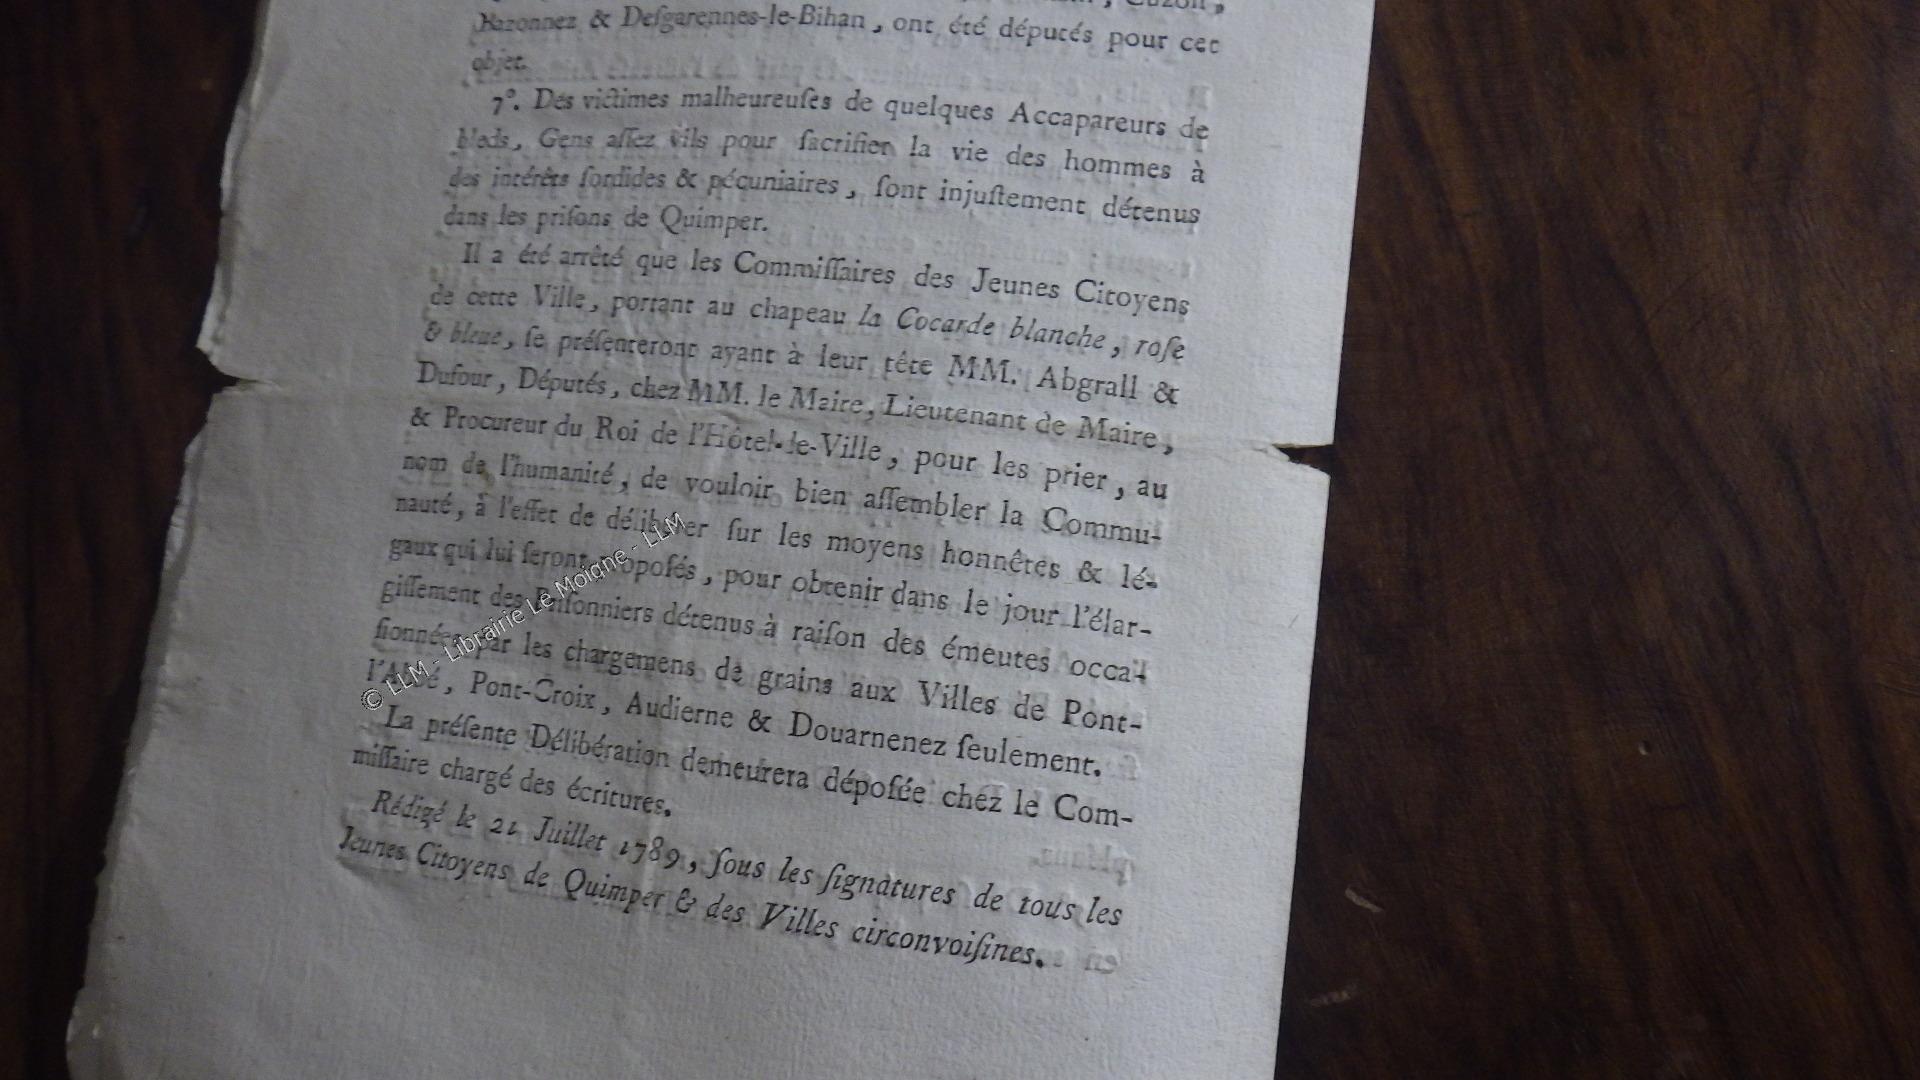 Cuzon,
Bazonnez & Deſgarennes-le-Bihan, ont été députés pour cet
objet.
7°. Des victimes malheureuſes de quelques Accapareurs de
bleds, Gens aſſez vils pour ſacrifier la vie des hommes à
des intérêts ſordides & pécuniaires, ſont injuſtement détenus
dans les priſons de Quimper.
Il a été arrêté que les Commiſſaires des Jeunes Citoyens
de cette Ville, portant au chapeau la Cocarde blanche, roſe
& bleue, ſe préſenteront ayant à leur tête MM. Abgrall &
Dufour, Députés, chez MM. le Maire, Lieutenant de Maire,
& Procureur du Roi de l'Hôtel-le-Ville, pour les prier, au
nom de l'humanité, de vouloir bien aſſembler la Commu-
nauté, à l'effet de délibérer ſur les moyens honnêtes & lé-
gaux qui lui ſeront propoſés, pour obtenir dans le jour l'élar-
giſſement des Priſonniers détenus à raiſon des émeutes occa-
ſionnées par les chargemens de grains aux Villes de Pont-
l'Abbé, Pont-Croix, Audierne & Douarnenez ſeulement.
La préſente Délibération demeurera dépoſée chez le Com-
miſſaire chargé des écritures.
Rédigé le 21 Juillet 1789, ſous les ſignatures de tous les
Jeunes Citoyens de Quimper & des Villes circonvoiſines.
© LLM - Librairie Le Moigne - LLM